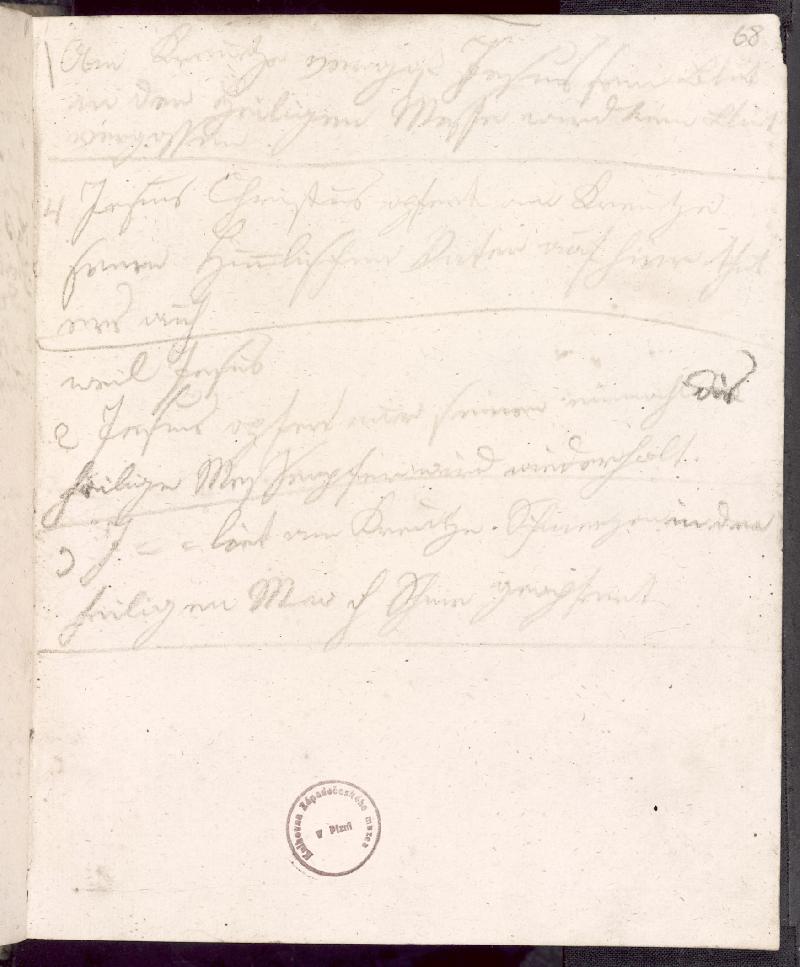 68
1 Am Kreutze vergoss Jesus sein Blut
in der Heiligen Messe wird kein Blut
vergossen
4 Jesus Christus opfert am Kreutze
seinem Himmlischen Vater auf hier thut
ers auch
weil Jesus
2 Jesus opfert nur einmahl die
heilige Messopfer wird wiederholt.
3 J = = am Kreutze Schmerzen in der
heiligen geopfert
Knihovna Západočeského musea
v Plzni